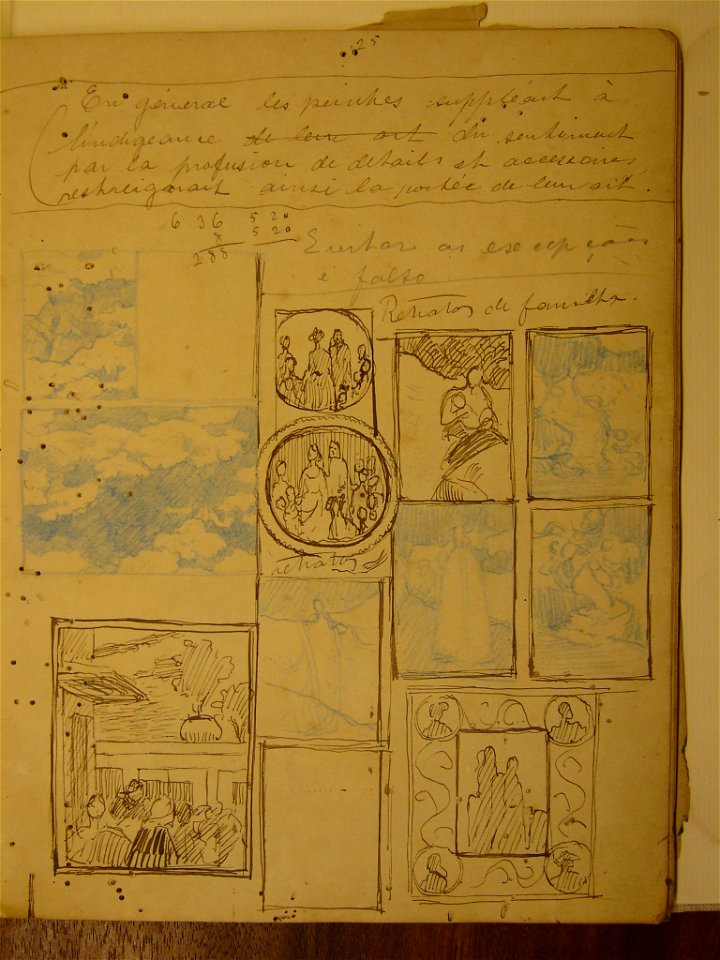 25
En général les peintres suppléant à
l'indigeance de leur art du sentiment
par la profusion de details et accessoires,
restreignait ainsi la portée de leur art.
6 36 5 20
8 5 20
288
Evitar as excepções
é falso
Retratos de familha.
retratos